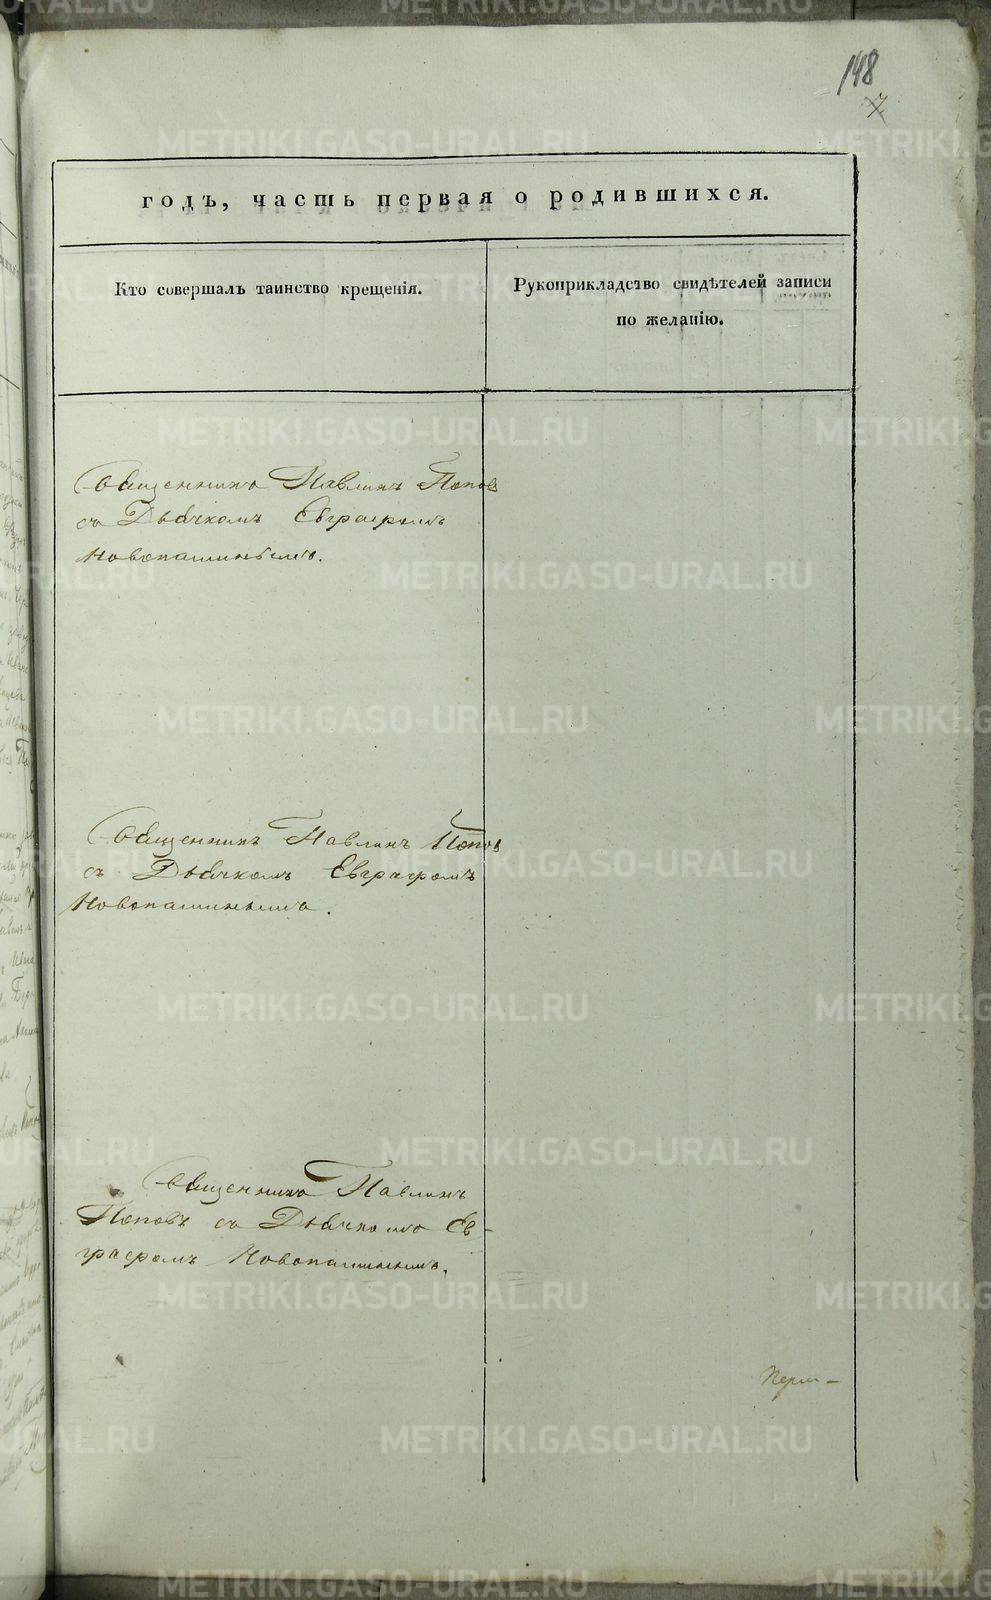 148
7
годъ, часть первая о родившихся.
Кто совершалъ таинство крещенія.
Рукоприкладство свидѣтелей записи
по желанію.
Священникъ Павлинъ Поповъ
съ Дьячкомъ Евграфомъ
Новопашинымъ.
Священникъ Павлинъ Поповъ
съ Дьячкомъ Евграфомъ
Новопашинымъ.
Священникъ Павлинъ
Поповъ съ Дьячкомъ Ев-
графомъ Новопашинымъ.
Перм-
METRIKI.GASO-URAL.RU